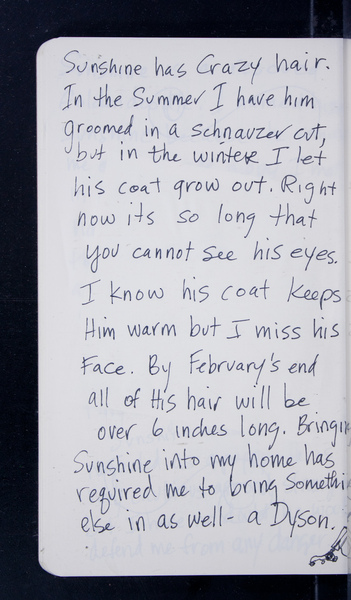 Sunshine has Crazy hair.
In the Summer I have him
groomed in a schnauzer cut,
but in the winter I let
his coat grow out. Right
now its so long that
you cannot see his eyes.
I know his coat keeps
Him warm but I miss his
Face. By February's end
all of His hair will be
over 6 inches long. Bringin
Sunshine into my home has
required me to bring Somethi
else in as well - a Dyson.